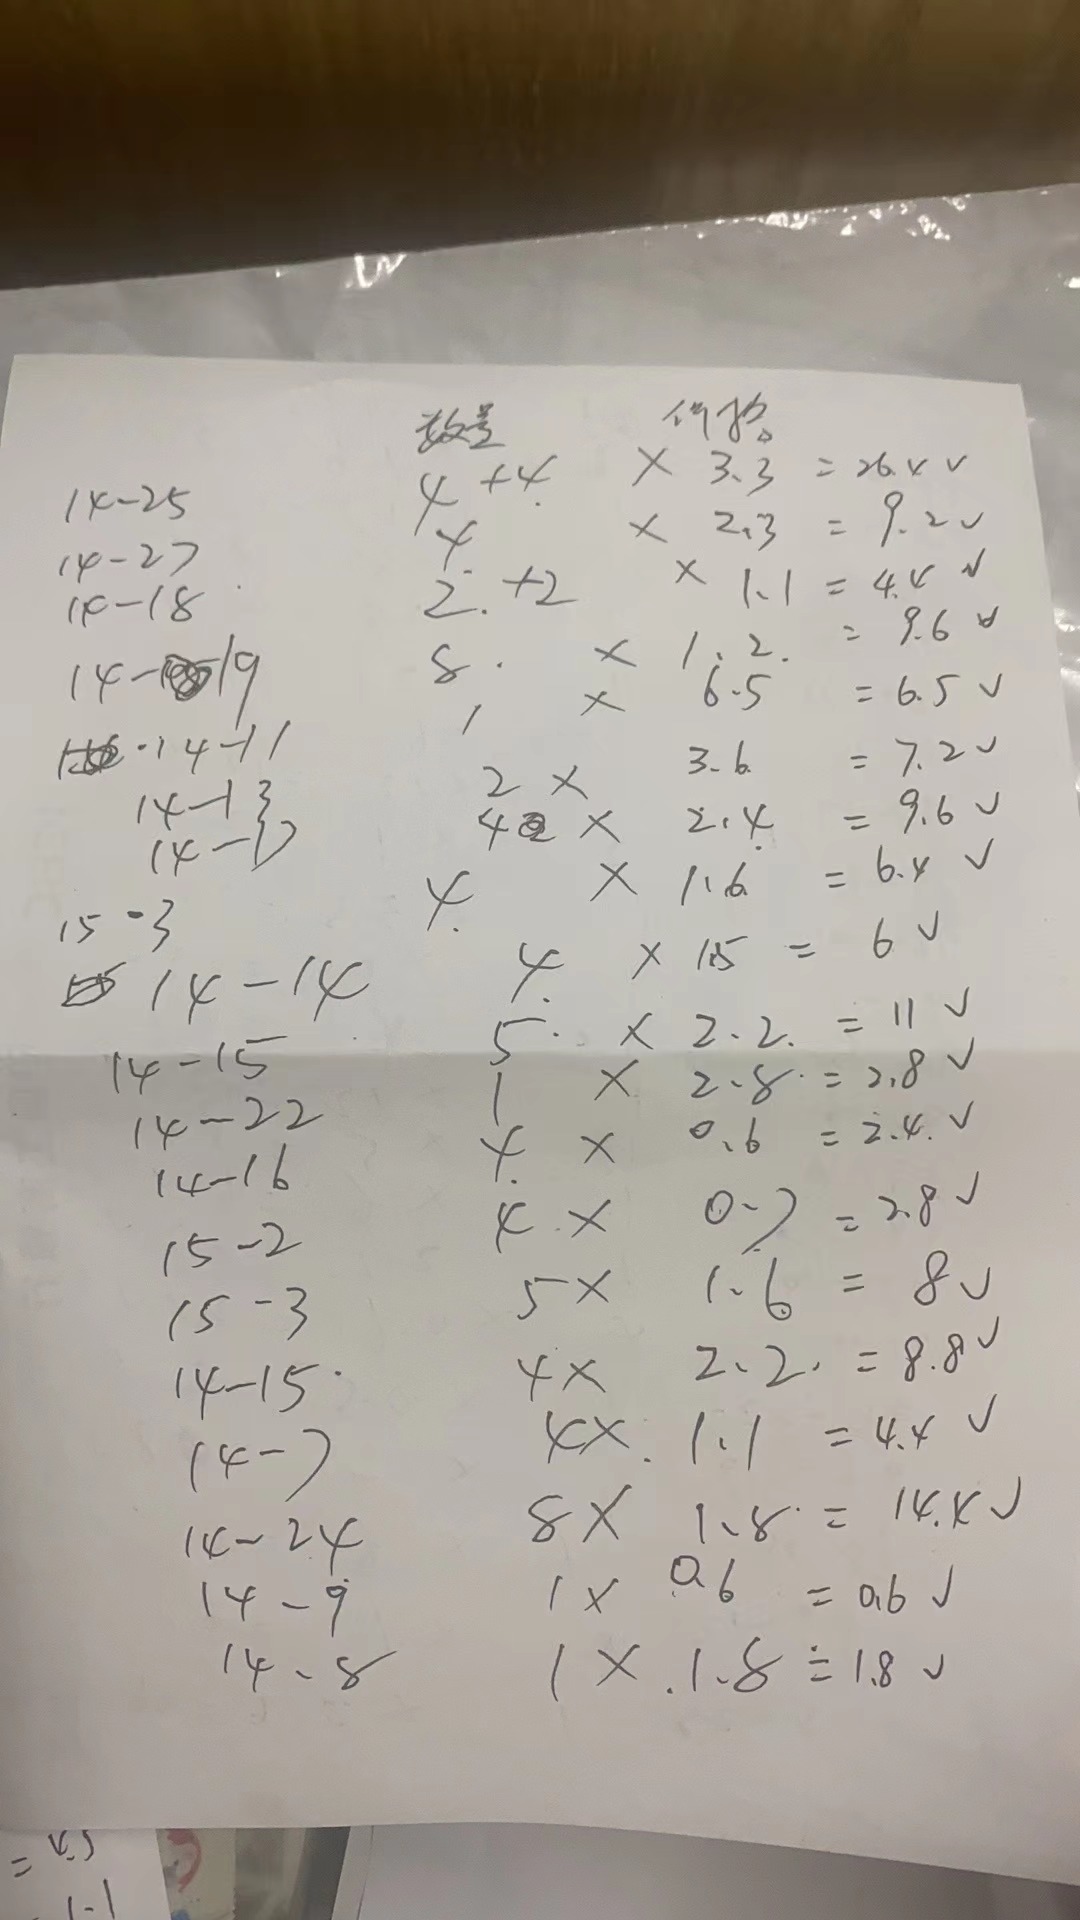 数量 价格
14-25 4+4 × 3.3 = 26.4 √
14-27 4 × 2.3 = 9.2 √
14-18 2.+2 × 1.1 = 4.4 √
14-19 8. × 1.2. = 9.6 √
14-11 1 × 6.5 = 6.5 √
14-13 2 × 3.6 = 7.2 √
14-17 4 × 2.4 = 9.6 √
15-3 4 × 1.6 = 6.4 √
14-14 4 × 1.5 = 6 √
14-15 5. × 2.2. = 11 √
14-22 1 × 2.8 = 2.8 √
14-16 4 × 0.6 = 2.4. √
15-2 4 × 0.7 = 2.8 √
15-3 5× 1.6 = 8 √
14-15 4× 2.2. = 8.8 √
14-7 4×. 1.1 = 4.4 √
14-24 8× 1.8 = 14.4 √
14-9 1× 0.6 = 0.6 √
14-8 1× .1.8 = 1.8 √
= 4.5
1.1